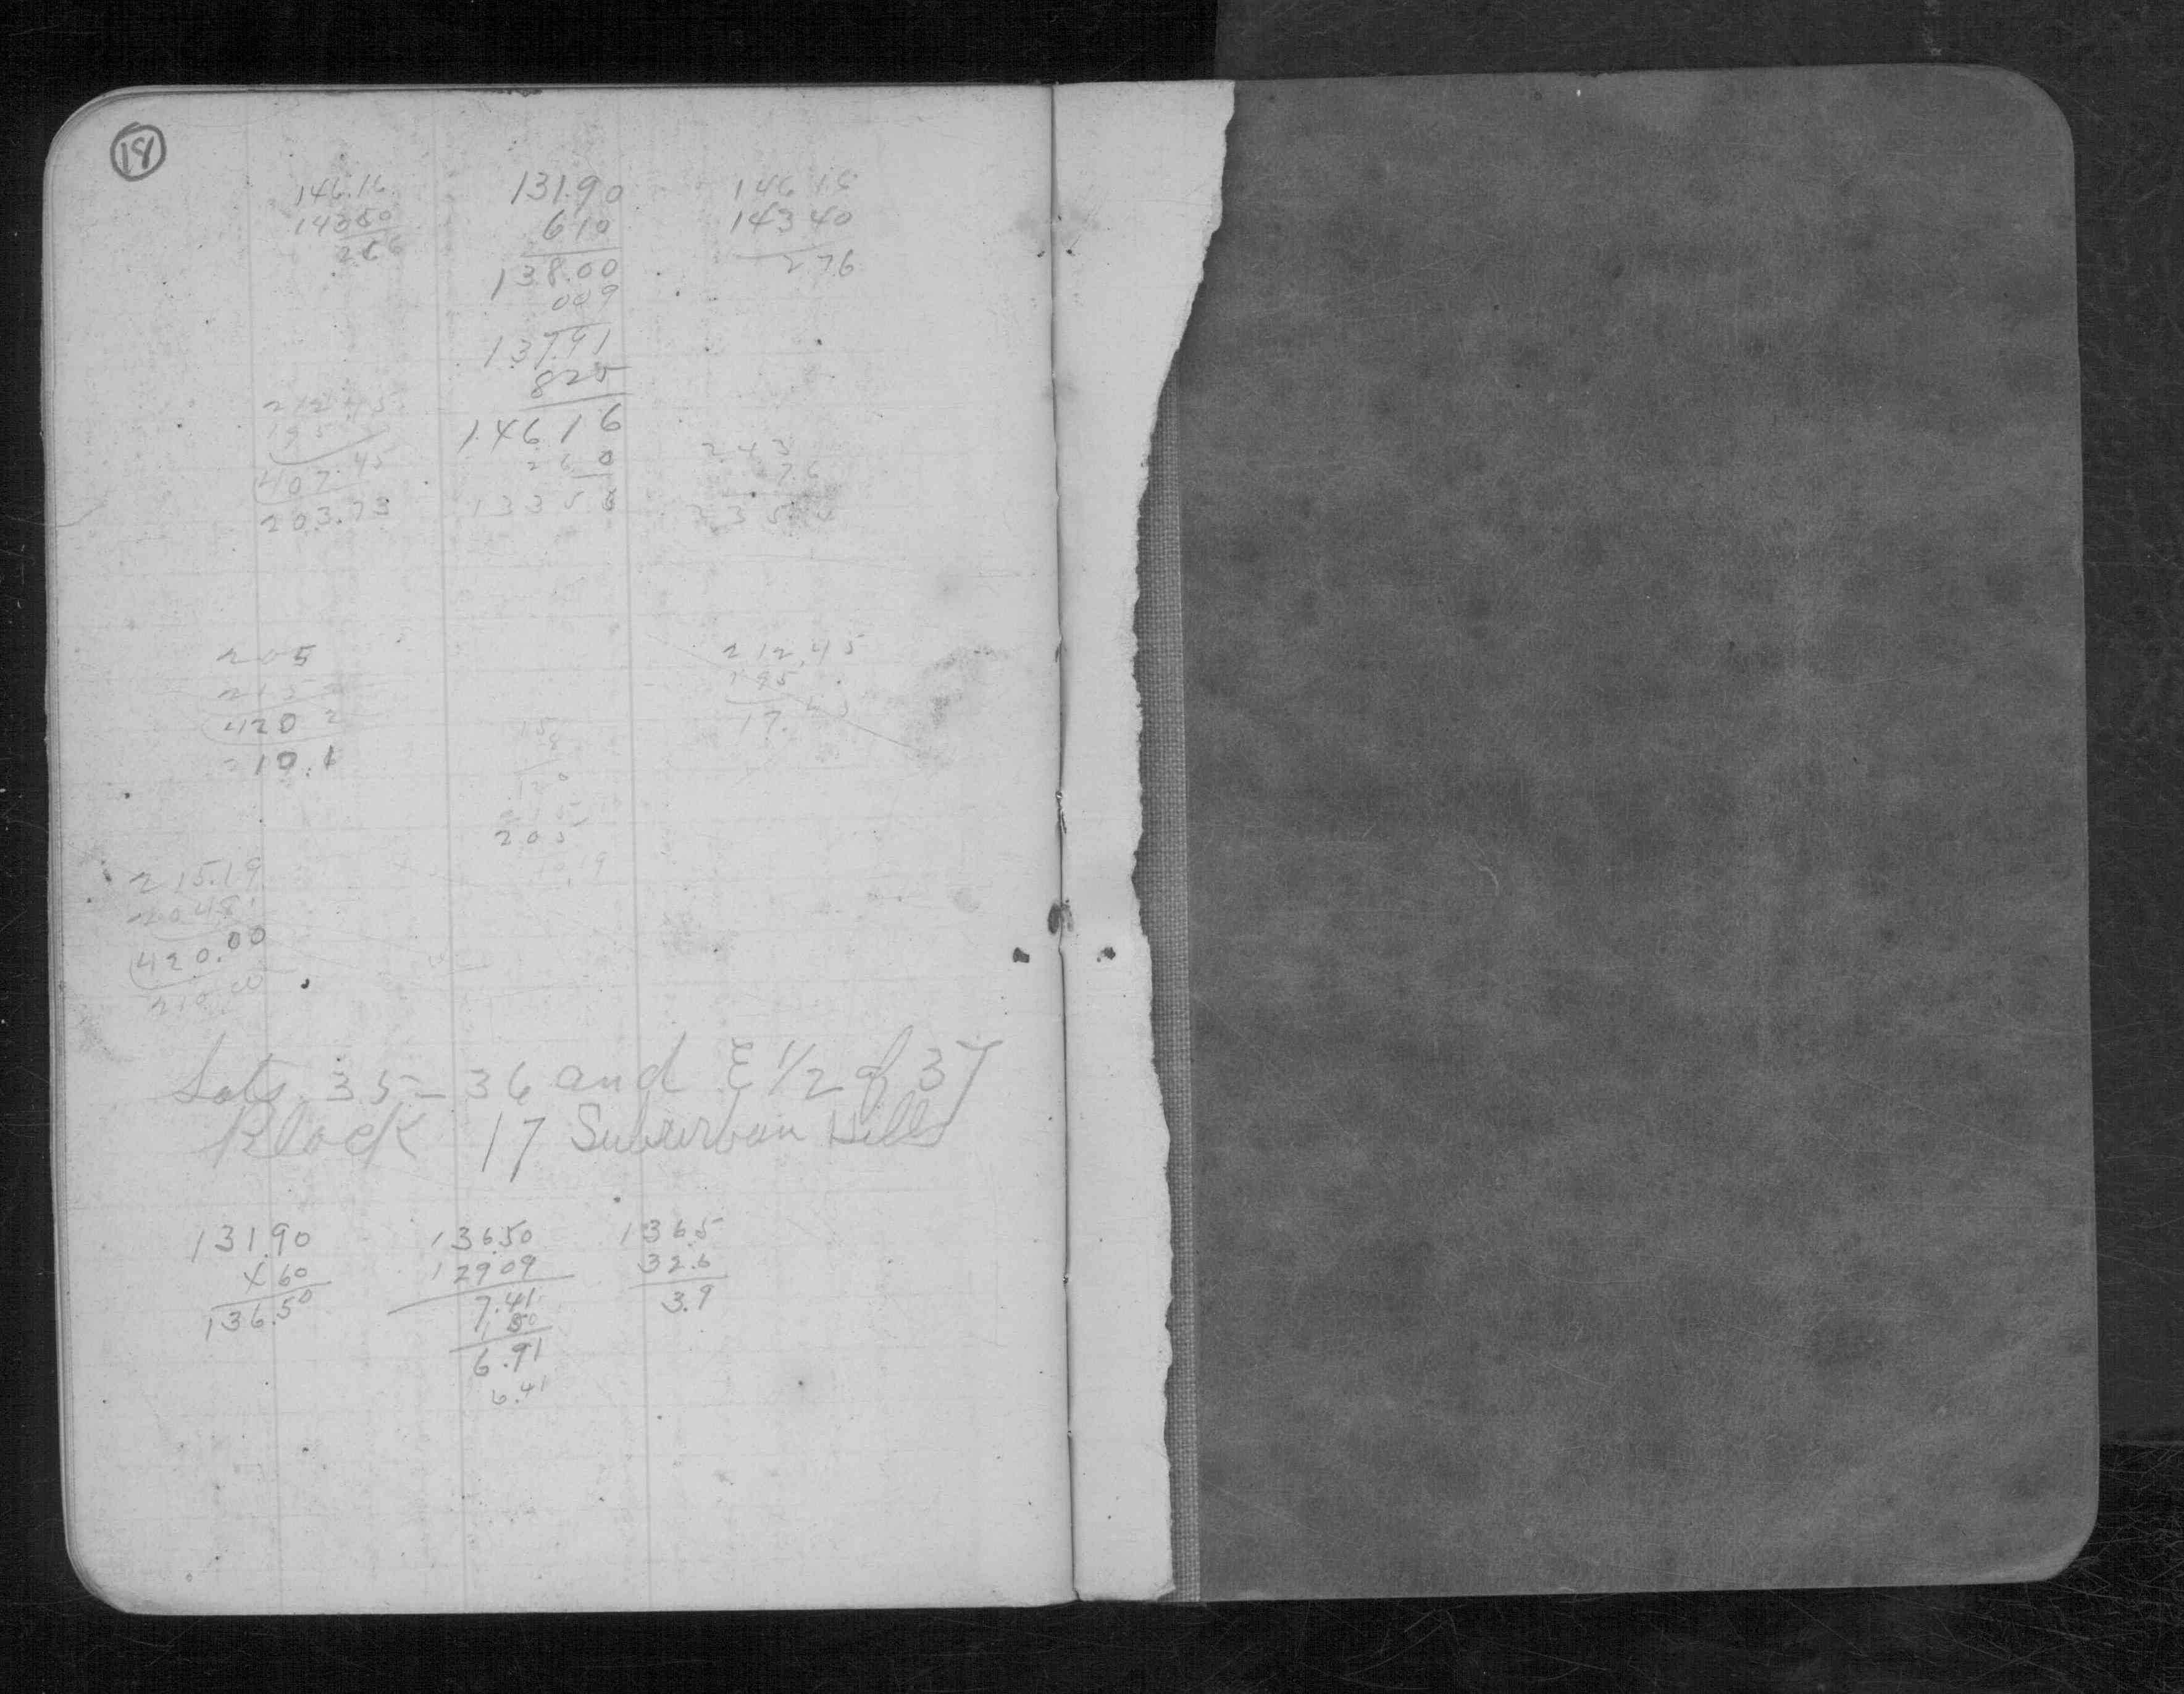 18
146.16
143.50
266
131.90
610
138.00
009
137.91
825
146.16
260
1335
146 16
143 40
276
212 45
195
407.45
203.73
243
7.6
205
215
420 2
10.1
212.45
195
17.45
15
205
10.19
215.19
204.81
420.00
210.00
Lots 35-36 and E 1/2 of 37
Block 17 Suburban Hills
131.90
4 60
136.50
136.50
129 09
7.41
50
6.91
6.41
136.5
32.6
3.9